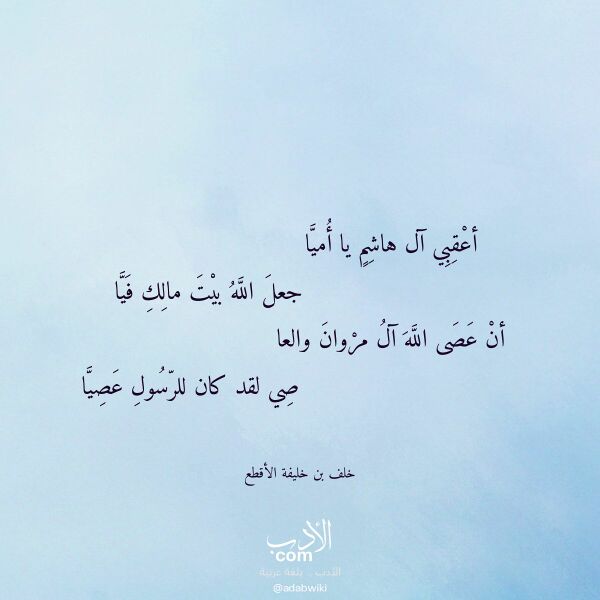 أعْقِبِي آل هاشِمٍ يا أُميَّا
جعلَ اللَّهُ بيْتَ مالِكِ فَيَّا
أنْ عَصَى اللَّهَ آلُ مرْوانَ والعا
صِي لقد كان للرّسُولِ عَصِيَّا
خلف بن خليفة الأقطع
الأدب
com
الأدب .. بلغة عربية
@adabwiki